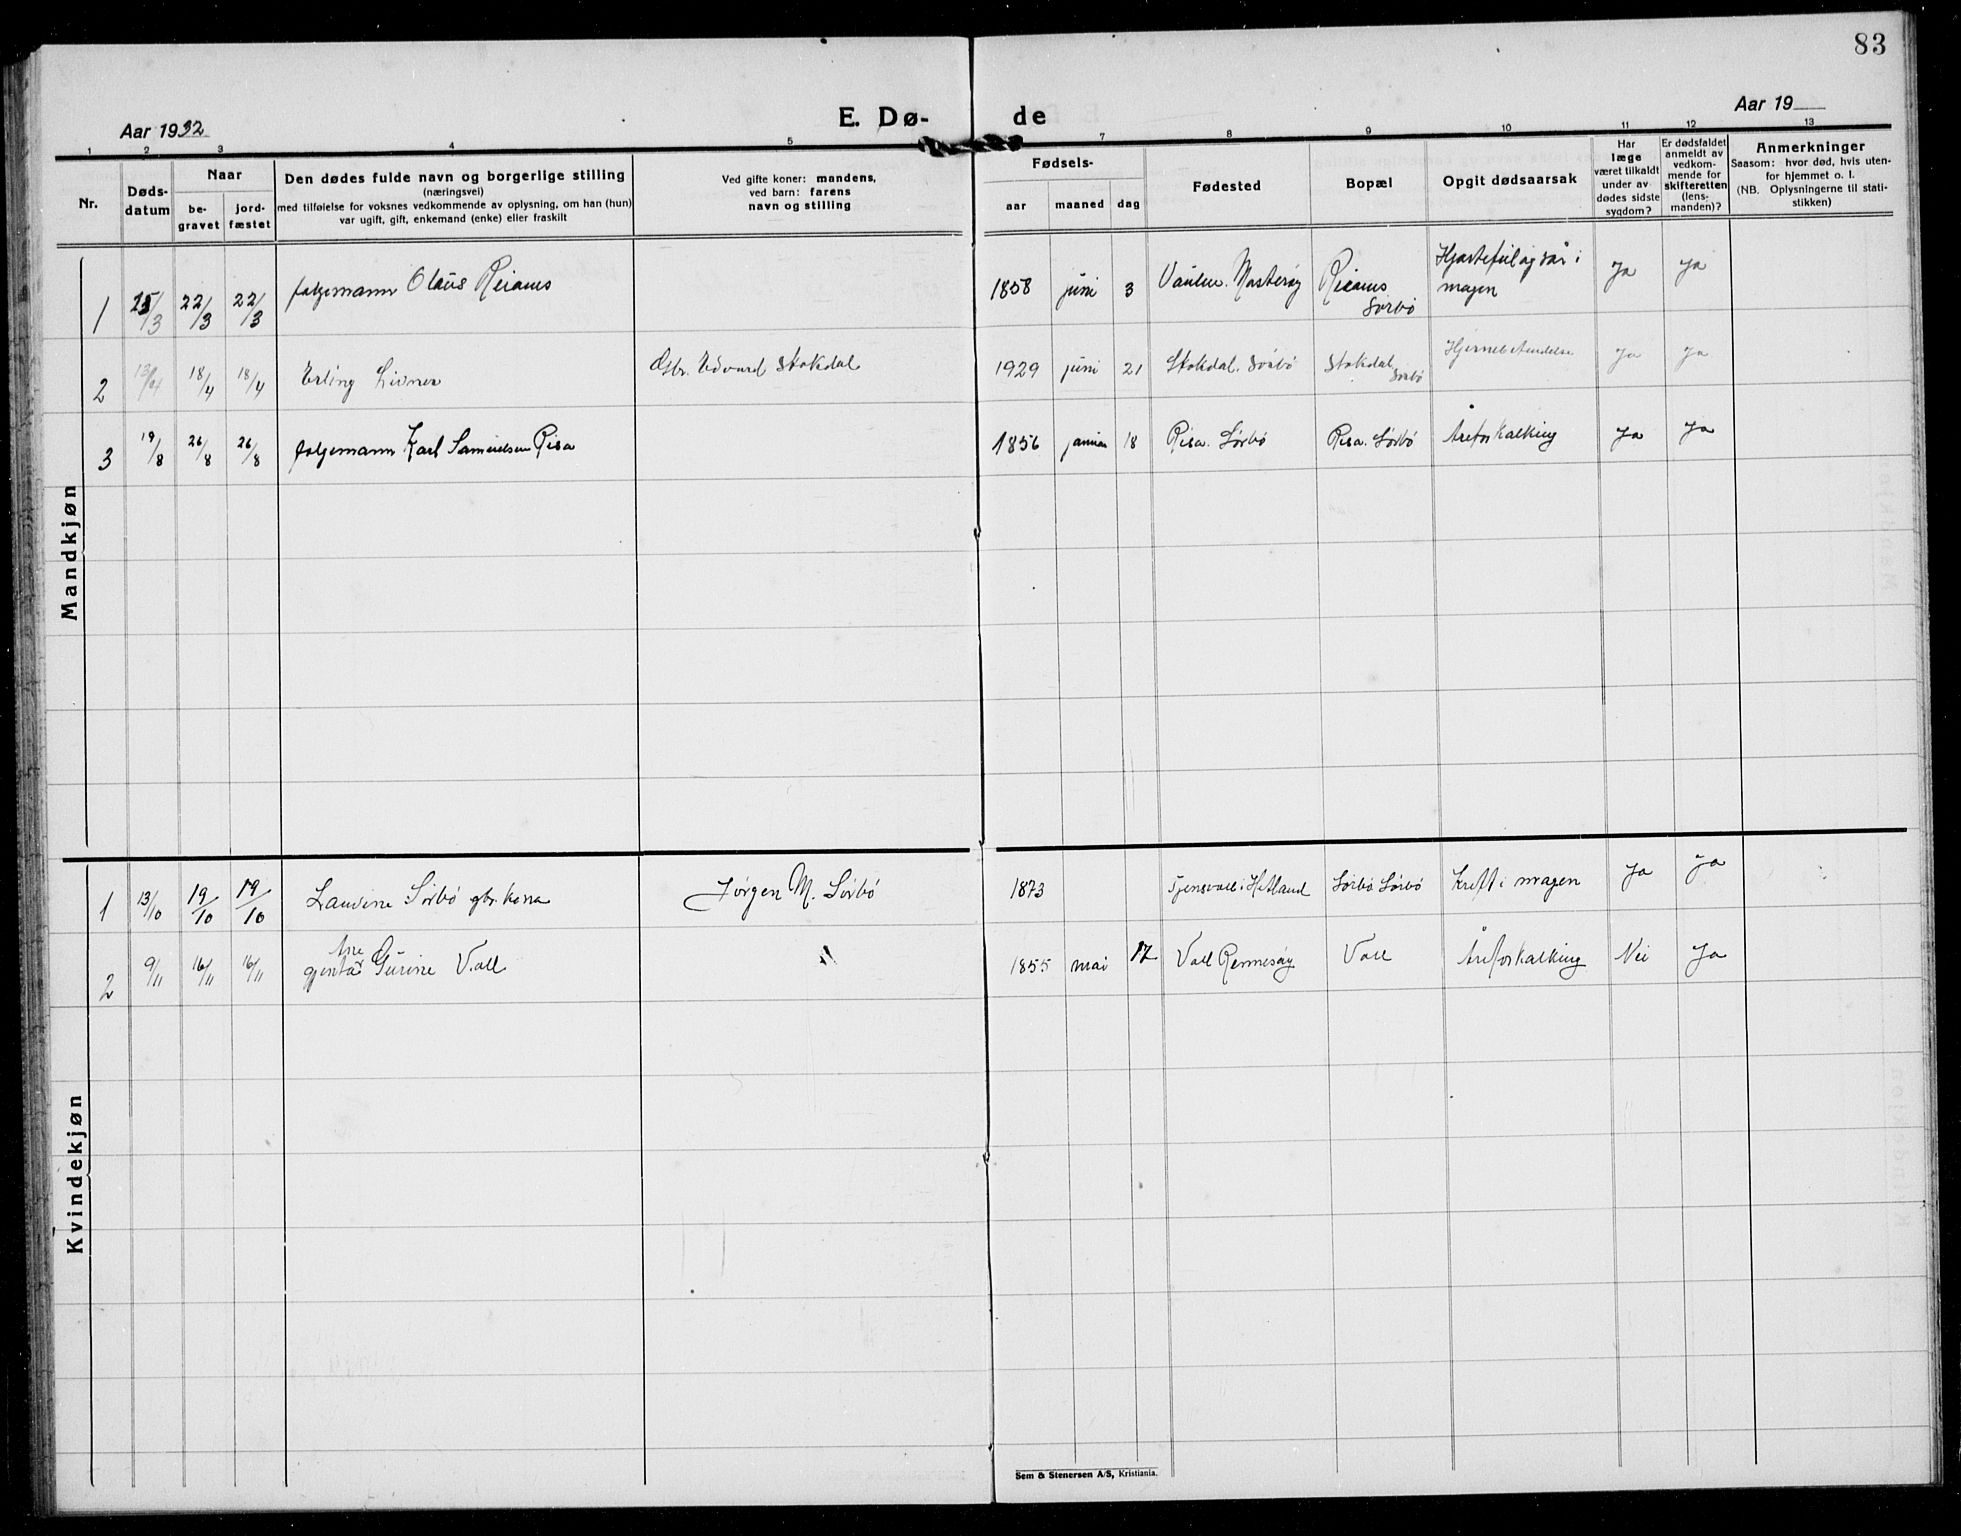 83
Aar 1932
E. Dø-
de
Aar 19
1 2 3 4 5 7 8 9 10 11 12 13
Nr.
Døds-
datum
Naar
be-
gravet
jord-
fæstet
Den dødes fulde navn og borgerlige stilling
(næringsvei)
med tilføielse for voksnes vedkommende av oplysning, om han (hun)
var ugift, gift, enkemand (enke) eller fraskilt
Ved gifte koner: mandens,
ved barn: farens
navn og stilling
Fødsels-
aar maaned dag
Fødested
Bopæl
Opgit dødsaarsak
Har
læge
været tilkaldt
under av-
dødes sidste
sygdom?
Er dødsfaldet
anmeldt av
vedkom-
mende for
skifteretten
(lens-
manden)?
Anmerkninger
Saasom: hvor død, hvis uten-
for hjemmet o. l.
(NB. Oplysningerne til stati-
stikken)
Mandkjøn
1 15/3 22/3 22/3 Olaus Reianes 1858 juni 3 Vaulen. Mosterøy Reianes Sørbø Hjertefeil og sår i magen Ja Ja
2 13/4 18/4 18/4 Erling Gbr. Edvard Stokdal 1929 juni 21 Stokdal. Sørbø Stokdal Sørbø Hjernebetendelse Ja Ja
3 19/8 26/8 26/8 Karl Samuelsen Risa 1856 januar 18 Risa. Sørbø Risa. Sørbø Åreforkalking Ja Ja
Kvindekjøn
1 13/10 19/10 19/10 Sørbø gbr. kona Jørgen M. Sørbø 1873 i Hetland Sørbø Sørbø Kreft i magen Ja Ja
2 9/11 16/11 16/11 gjenta Ane Gurine Vall 1855 mai 17 Vall Rennesøy Vall Åreforkalking Nei Ja
Sem & Stenersen A/S, Kristiania.